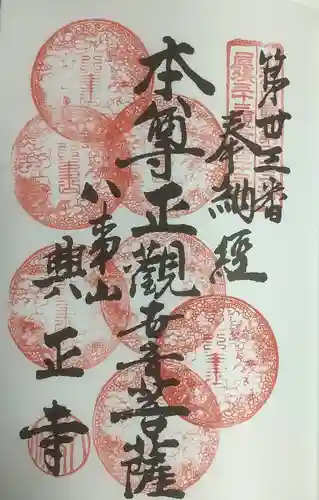 第廿三番
奉納経
本尊正観世音菩薩
八事山
興正寺